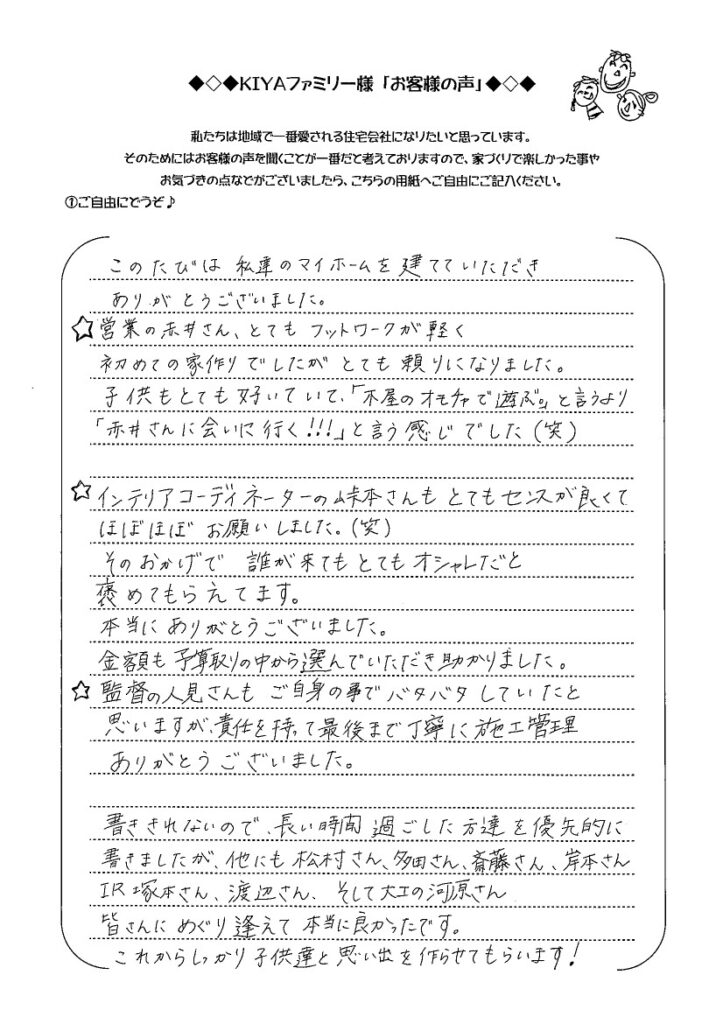 ◆◇◆KIYAファミリー様「お客様の声」◆◇◆
私たちは地域で一番愛される住宅会社になりたいと思っています。
そのためにはお客様の声を聞くことが一番だと考えておりますので、家づくりで楽しかった事や
お気づきの点などがございましたら、こちらの用紙へご自由にご記入ください。
①ご自由にどうぞ♪
このたびは 私達のマイホームを建てていただき
ありがとうございました。
☆営業の赤井さん、とても フットワークが軽く
初めての家作りでしたが とても頼りになりました。
子供もとても好いていて、「木屋のオモチャで遊ぶ。」と言うより
「赤井さんに会いに行く!!!」と言う感じでした(笑)
☆インテリアコーディネーターの峠本さんも とてもセンスが良くて
ほぼほぼ お願いしました。(笑)
そのおかげで 誰が来てもとてもオシャレだと
褒めてもらえてます。
本当に ありがとうございました。
金額も 予算取りの中から選んでいただき助かりました。
☆監督の人見さんも ご自身の事でバタバタしていたと
思いますが、責任を持って最後まで丁寧に施工管理
ありがとうございました。
書ききれないので、長い時間 過ごした方達を優先的に
書きましたが、他にも 松村さん、多田さん、斎藤さん、岸本さん
IR塚本さん、渡辺さん、そして大工の河原さん
皆さんに めぐり逢えて 本当に良かったです。
これからしっかり子供達と思い出を作らせてもらいます!